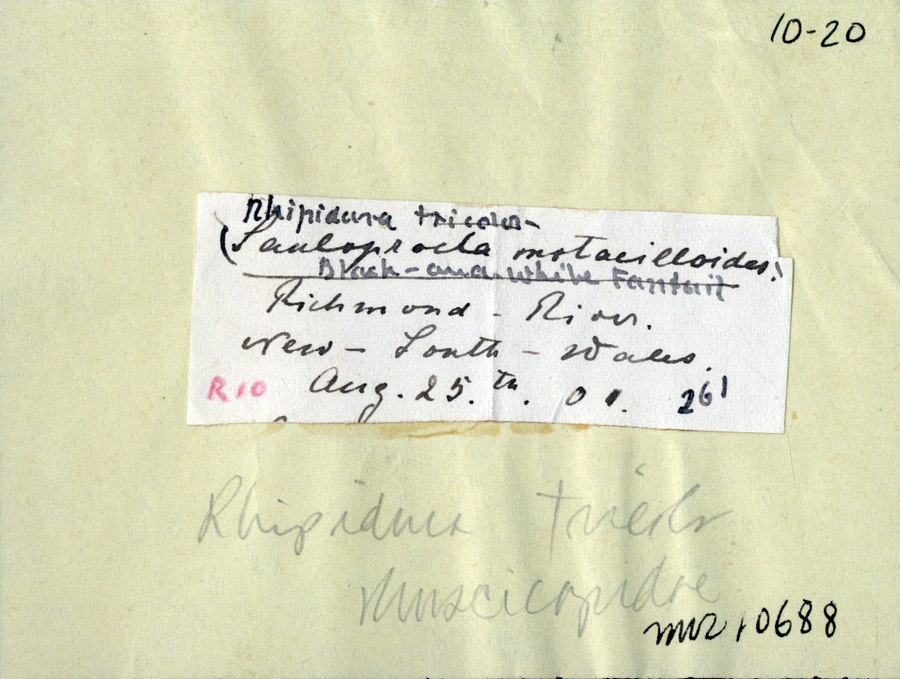 10-20
Rhipidura tricolor-
(Sauloprocta motacilloides.
Black-and-white Fantail
Richmond - River.
New - South - Wales.
R10 Aug. 25.th. 01. 261
Rhipidura tricolor
Muscicapidae
mvz10688